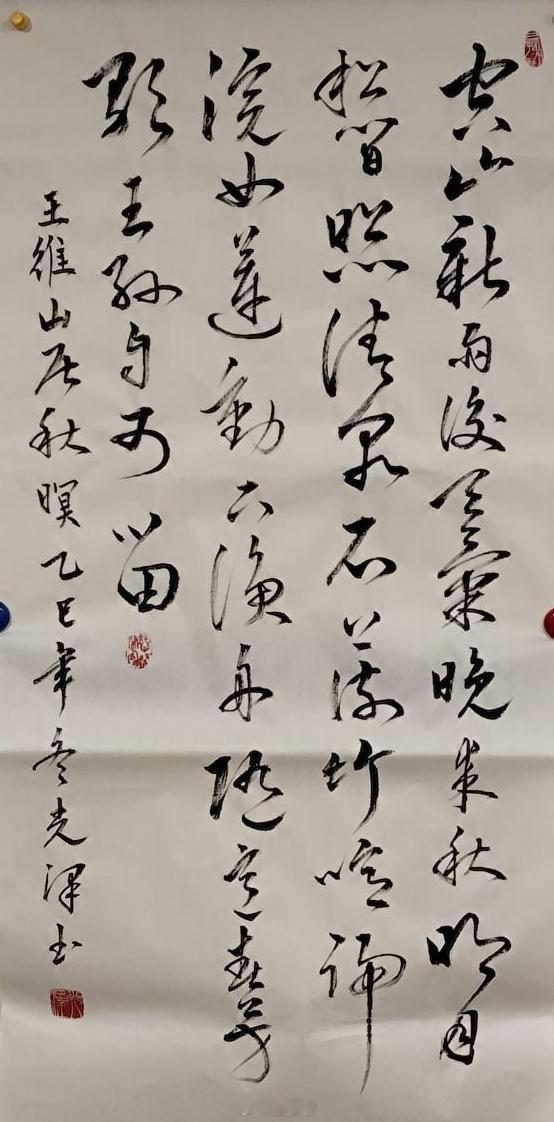 空山新雨後天氣晚來秋明月
松間照清泉石上流竹喧歸
浣女蓮動下漁舟隨意春芳
歇王孫自可留
王維山居秋暝乙巳年冬光澤書